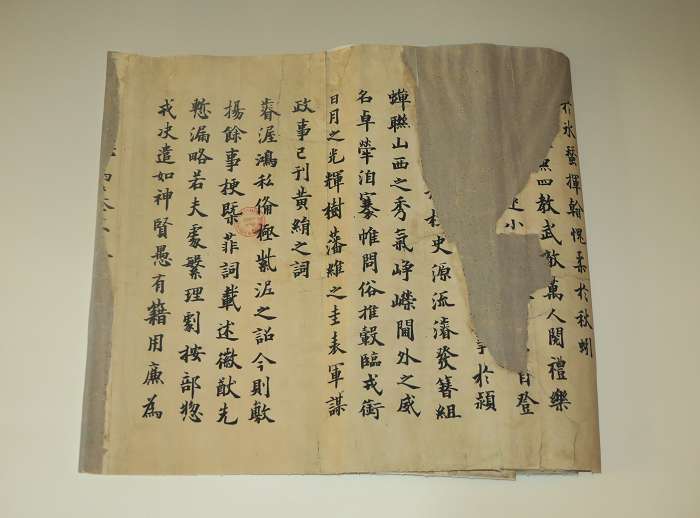 於氷蚕揮翰愧柔於秋蚓
四教武敌萬人閱禮樂
小 登
於潁
史源流濬發簮組
蟬聯山西之秀氣崢嶸閫外之威
名卓犖洎褰帷問俗推轂臨戎衝
日月之光輝樹藩維之圭表軍謀
政事已刋黃絹之詞
眷渥鴻私俻極紫泥之詔今則敷
揚餘事梗槩菲詞載述徽猷先
慙漏略若夫處繁理劇按部惣
戎决遣如神賢愚有籍用廉為